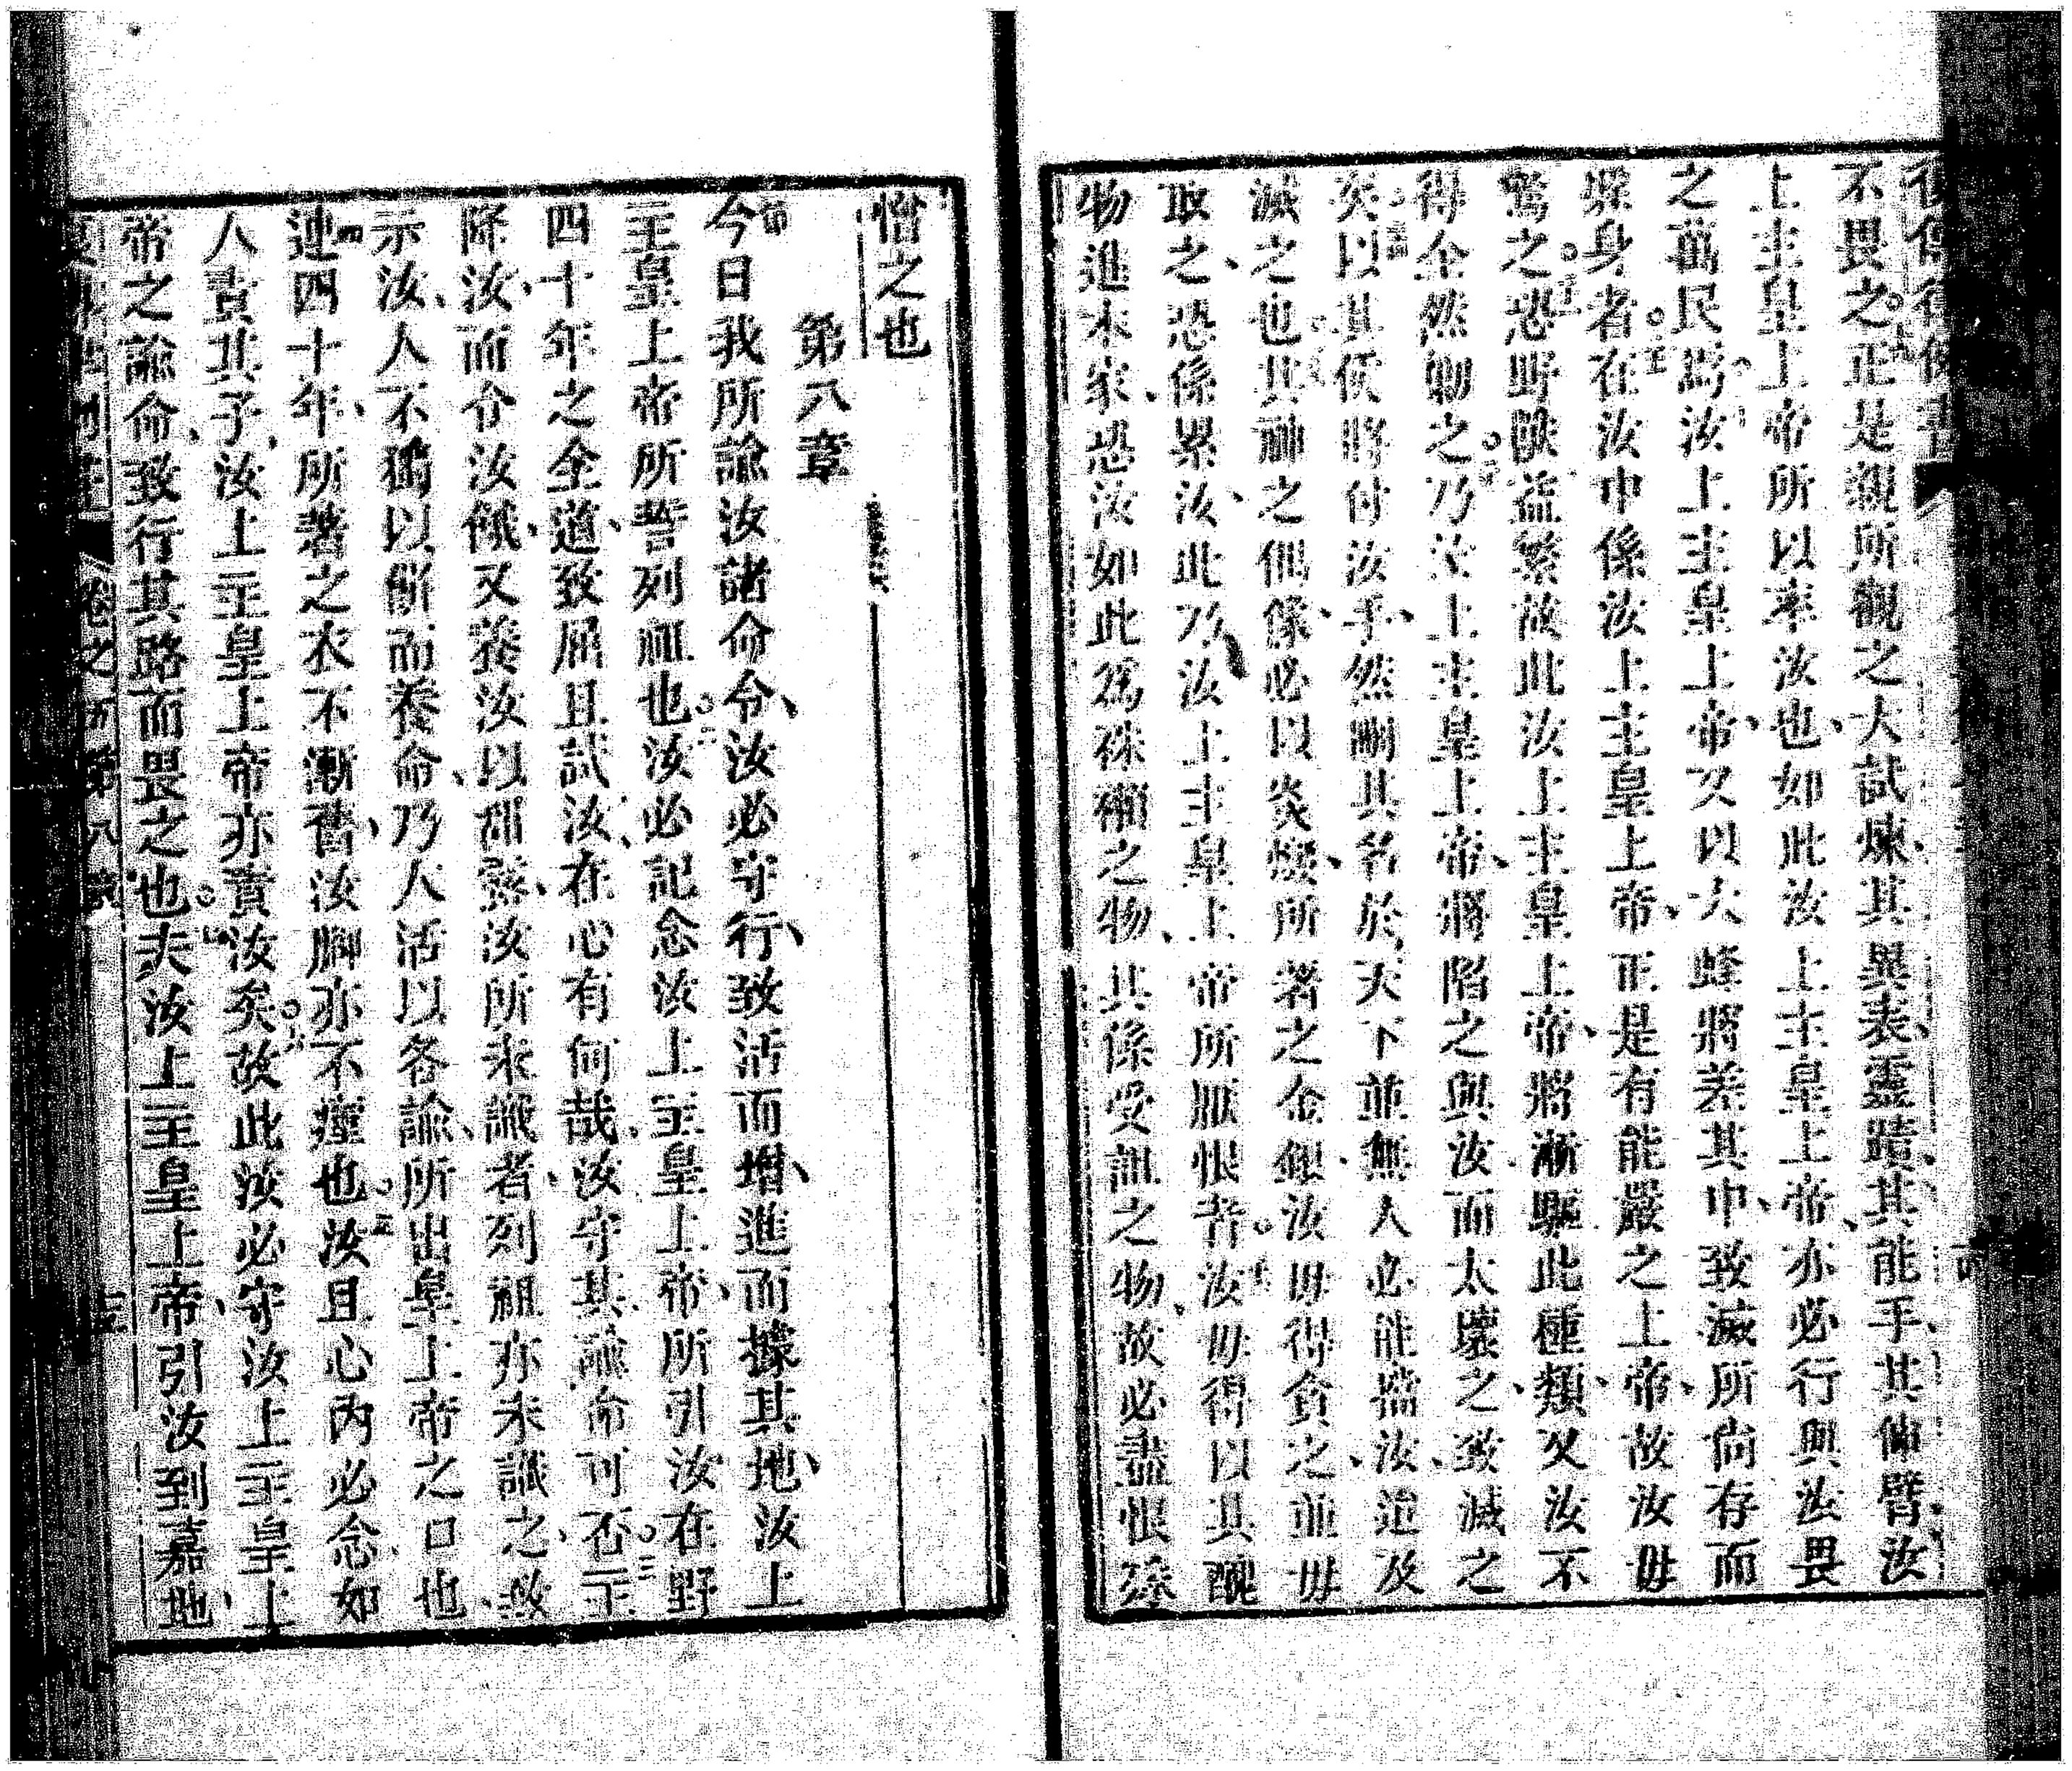 不畏之正是親所觀之大試煉其異表靈蹟其能手其伸臂汝
上主皇上帝所以率汝也如此汝上主皇上帝亦必行與汝畏
之萬民焉汝上主皇上帝又以大蜂將差其中致滅所尚存而
躲身者在汝中係汝上主皇上帝正是有能嚴之上帝故汝毋
驚之恐野獸益繁故此汝上主皇上帝將漸驅此種類又汝不
得全然勦之乃汝上主皇上帝將陷之與汝而太壞之致滅之
矣以其侯將付汝手然刪其名於天下並無人必能當汝迨及
滅之也其神之偶像必以炎燬所著之金銀汝毋得貪之並毋
取之恐係累汝此乃汝上主皇上帝所厭恨者汝毋得以其醜
物進本家恐汝如此為殊之物其係受詛之物故必盡恨
憎之也
第八章
今日我所諭汝諸命令汝必守行致活而增進而據其地汝上
主皇上帝所誓列祖也汝必記念汝上主皇上帝所引汝在野
四十年之全道致屈且試汝在心有何哉汝守其諭命可否三主
降汝而令汝餓又養汝以瑪露汝所未識者列祖亦未識之致
示汝人不獨以餅而養命乃人活以各諭所出皇上帝之口也
四連四十年所著之衣不漸舊汝腳亦不瘇也五汝且心內必念如
人責其子汝上主皇上帝亦責汝矣故此汝必守汝上主皇上
帝之諭命致行其路而畏之也七夫汝上主皇上帝引汝到嘉地
卷之五第八章